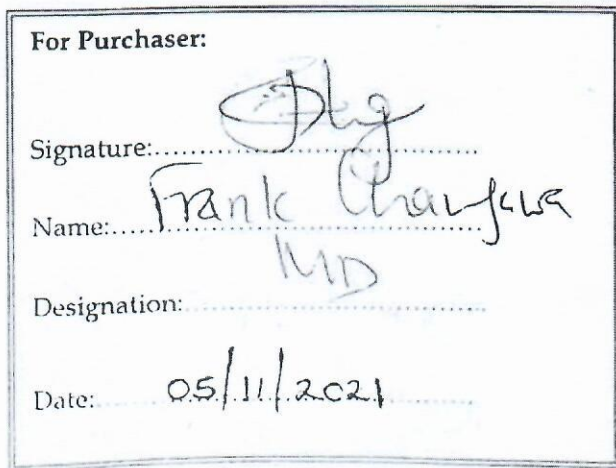 For Purchaser:
Signature:
Name: Frank
Designation: MD
Date: 05/11/2021